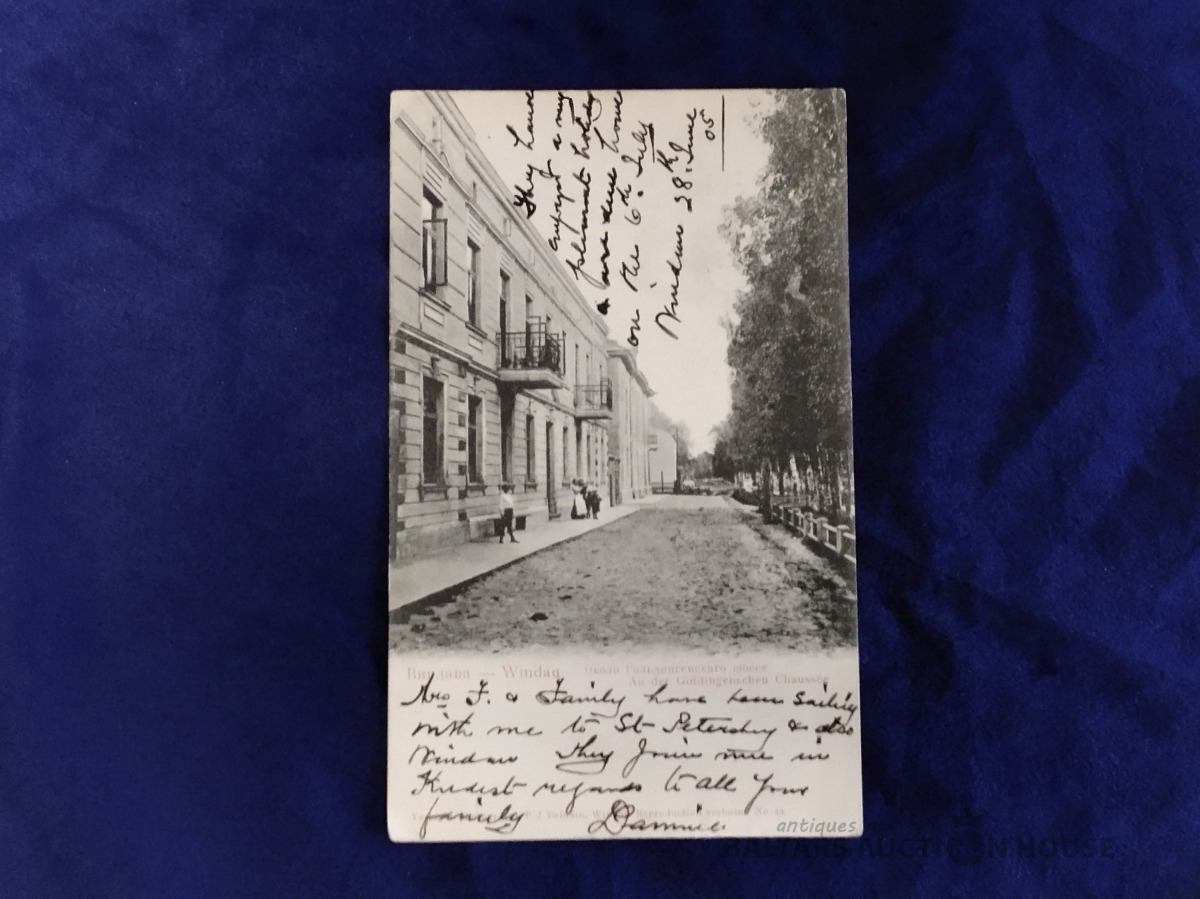 They have
enjoyed a
pleasant holiday
& are due home
on the 6th July
Windau 28th June
05
Виндава — Windau
Около Гольдингенскаго шоссе
An der Goldingenschen Chaussée
Mrs F. & Family have been sailing
with me to St Petersbg & also
Windau they join me in
Kindest regards to all your
family
Reproduction verboten No. 44
antiques
BALTARS AUCTION HOUSE